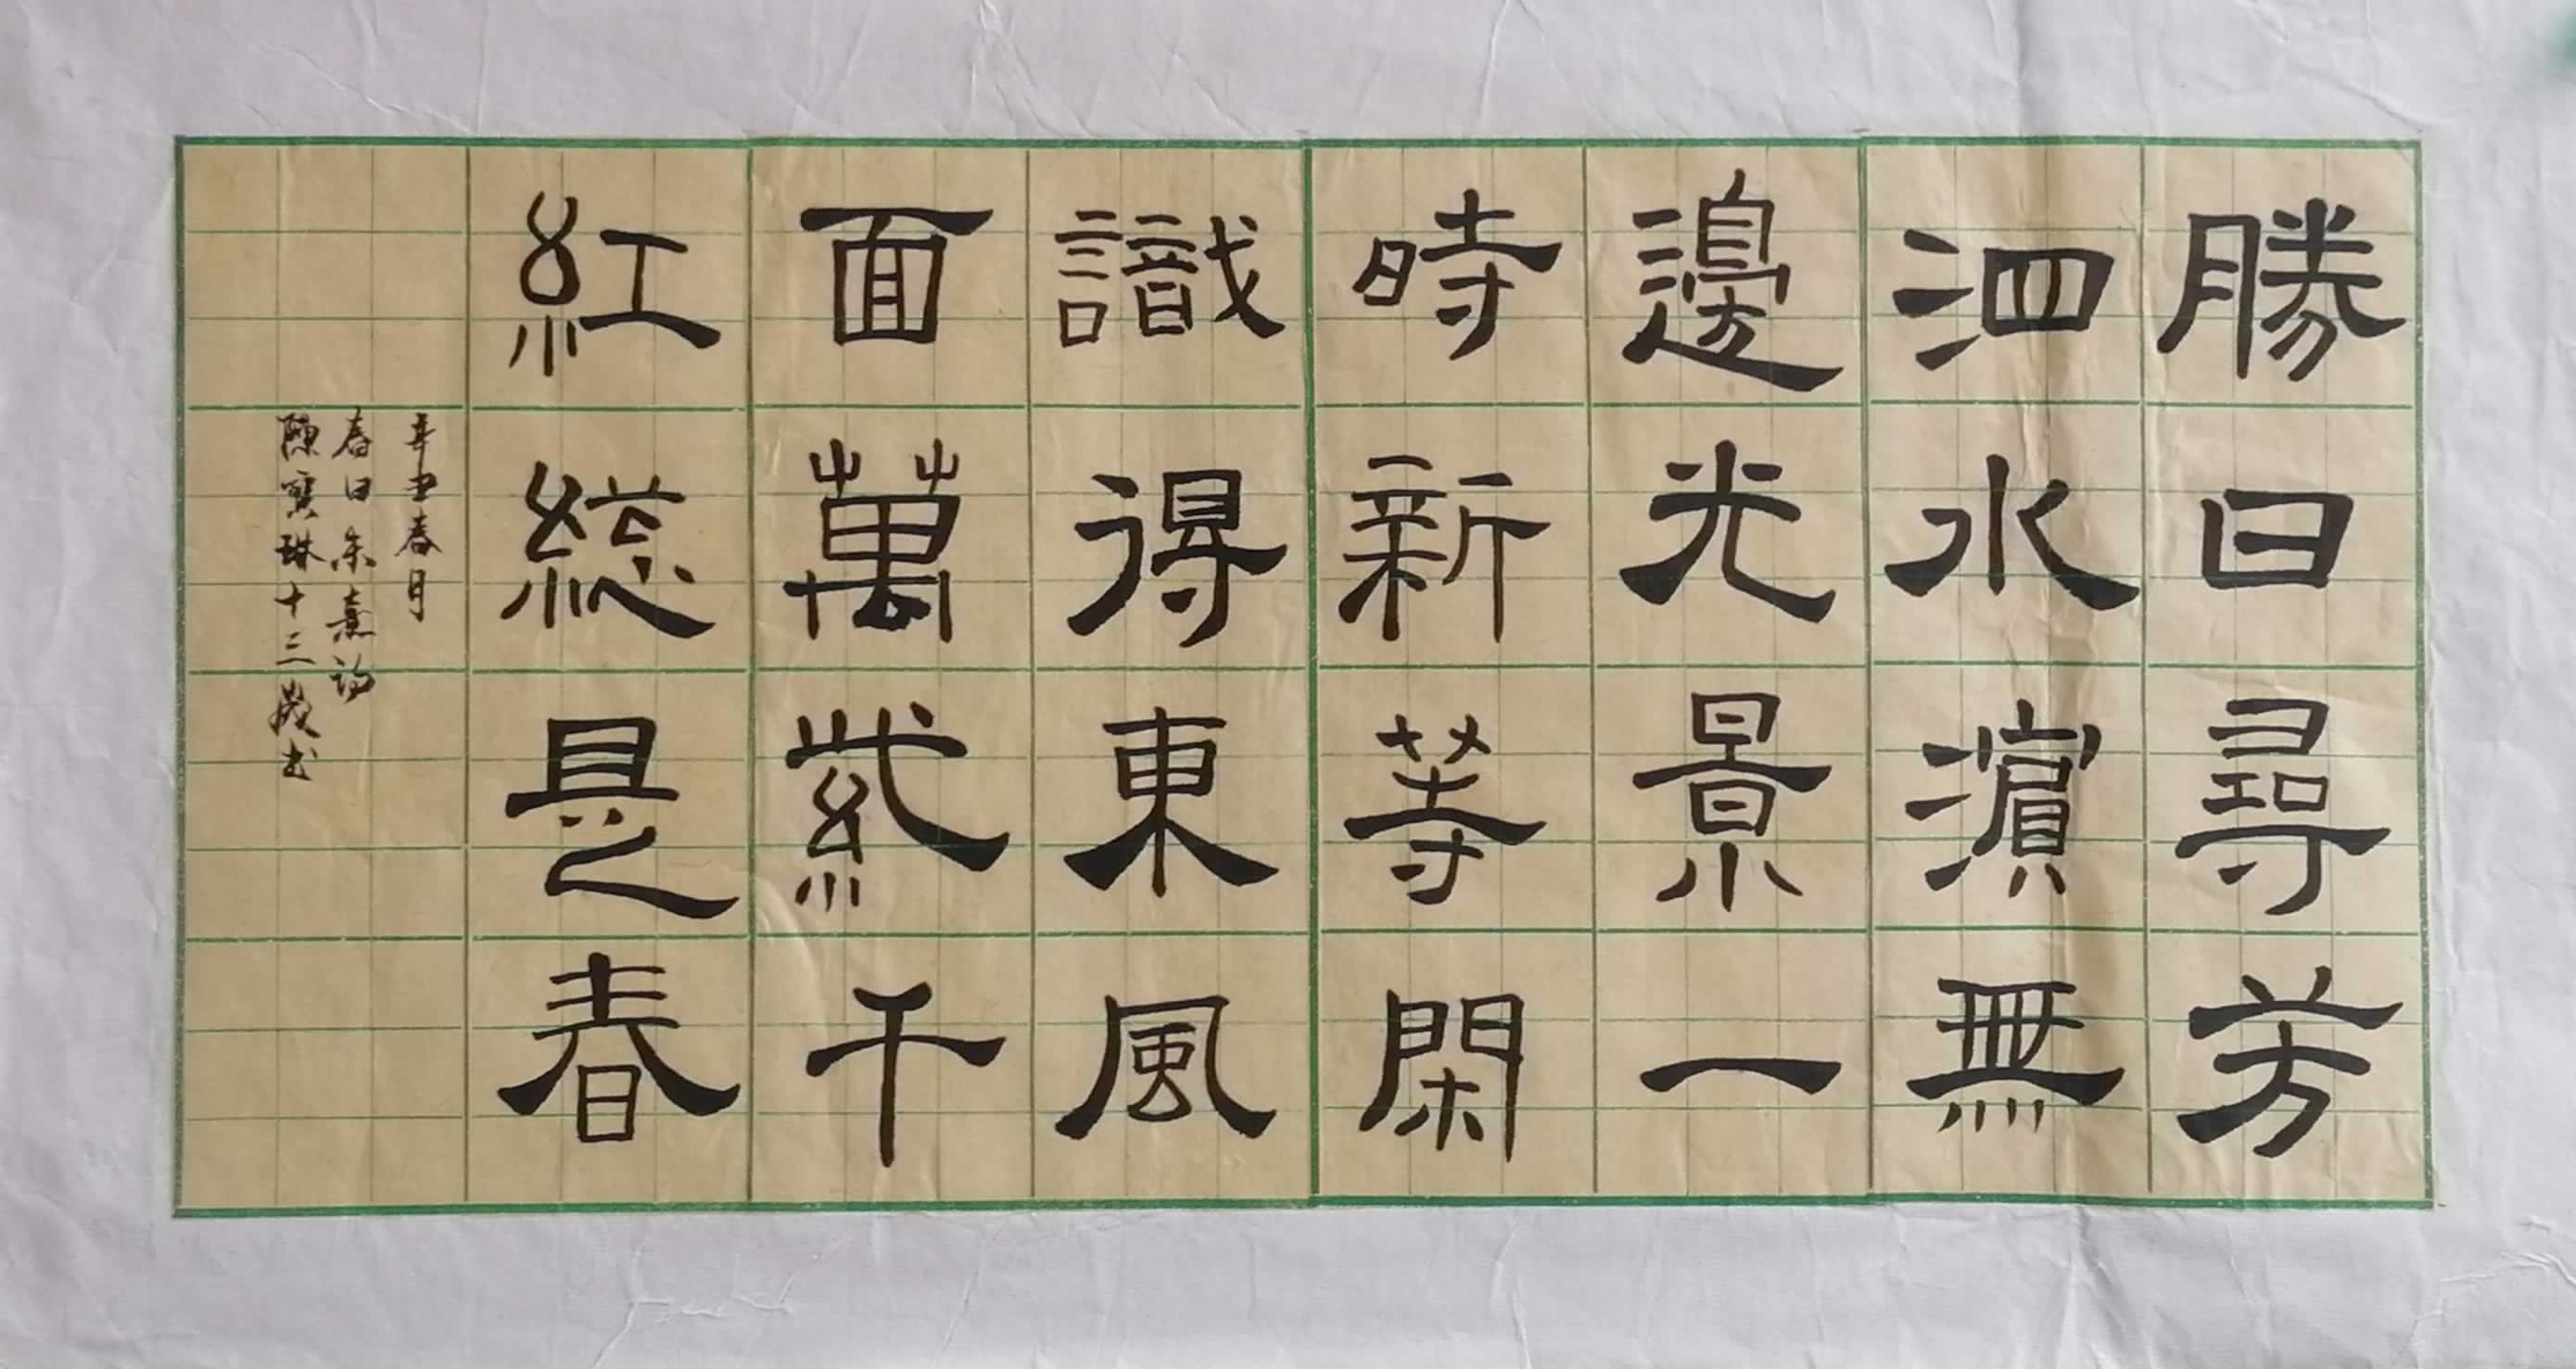 勝日尋芳
泗水濵無
邊光景一
時新等閑
識得東風
面萬紫千
紅総是春
辛丑春月
春日朱熹詩
陳寶琳十三歲书